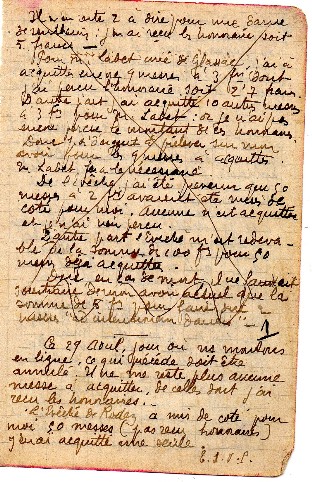 Il m'en reste 2 à dire pour une dame
de j'ai reçu les honoraires soit
5 francs —
Pour Mr Labet curé de Glassac, j'ai à
acquitter encore 9 messes à 3 frs dont
j'ai perçu l'honoraire soit 27 francs.
D'autre part, j'ai acquitté 10 autres messes
à 3 frs pour Mr Labet : or je n'ai pas
encore perçu le montant de ces honoraires.
Donc à prélever sur mon
avoir pour les 9 messes à acquitter.
Mr Labet fera le nécessaire
De l'Evêché, j'ai été prévenu que 50
messes à 2 frs avaient été mises de
côté pour moi. Aucune n'est acquittée
et je n'ai rien perçu.
D'autre part l'Evêché m'est redeva-
ble de la somme de 100 frs pour 50
messes déjà acquittées.
Donc en cas de mort, il ne faudrait
soustraire de mon avoir actuel que la
somme de 5 frs pour faire dire 2
messes "ad intentionem dantis" —
Ce 29 Avril, jour où ns montons
en ligne, ce qui précède doit être
annulé. Il ne me reste plus aucune
messe à acquitter, de celles dont j'ai
reçu les honoraires.
L'Evêché de Rodez a mis de côté pour
moi 50 messes (pas reçu honoraires)
j'en ai acquitté une seule